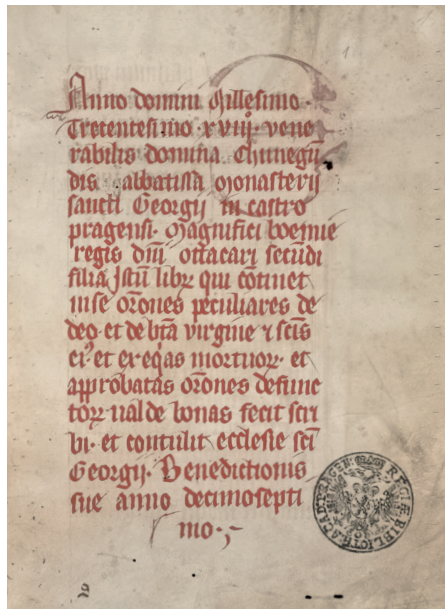 Anno domini Millesimo
Trecentesimo xviij vene
rabilis domina Chunegū
dis abbatissa monasterij
sancti Georgij in castro
pragensi. Magnifici boemie
regis dn̄i ottacari secūdi
filia Istū libꝝ qui cōtinet
in se orōnes peculiares de
deo et de btā virgine ⁊ scīs
eiꝰ et exeq̄as mortuoꝝ et
approbatas orōnes defunc
toꝝ ualde bonas fecit scri
bi. et contulit ecclesie scī
Georgij. Benedictionis
sue anno decimosepti
mo.